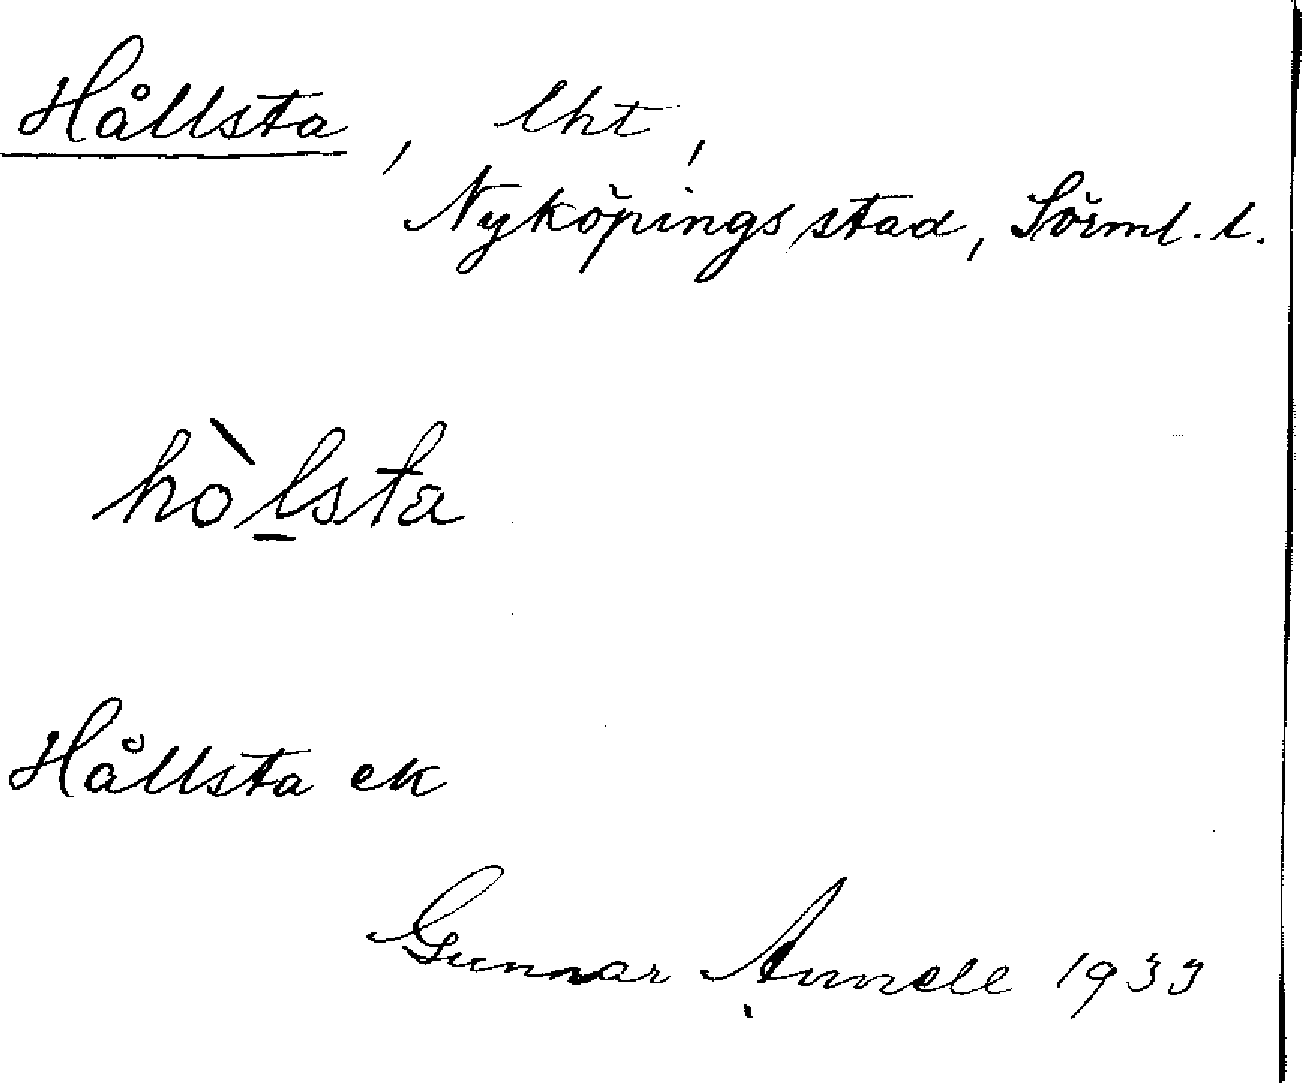 Hållsta, lht,
Nyköpings stad, Sörml. l.
hòl̠sta
Hållsta ek
Gunnar Annell 1933